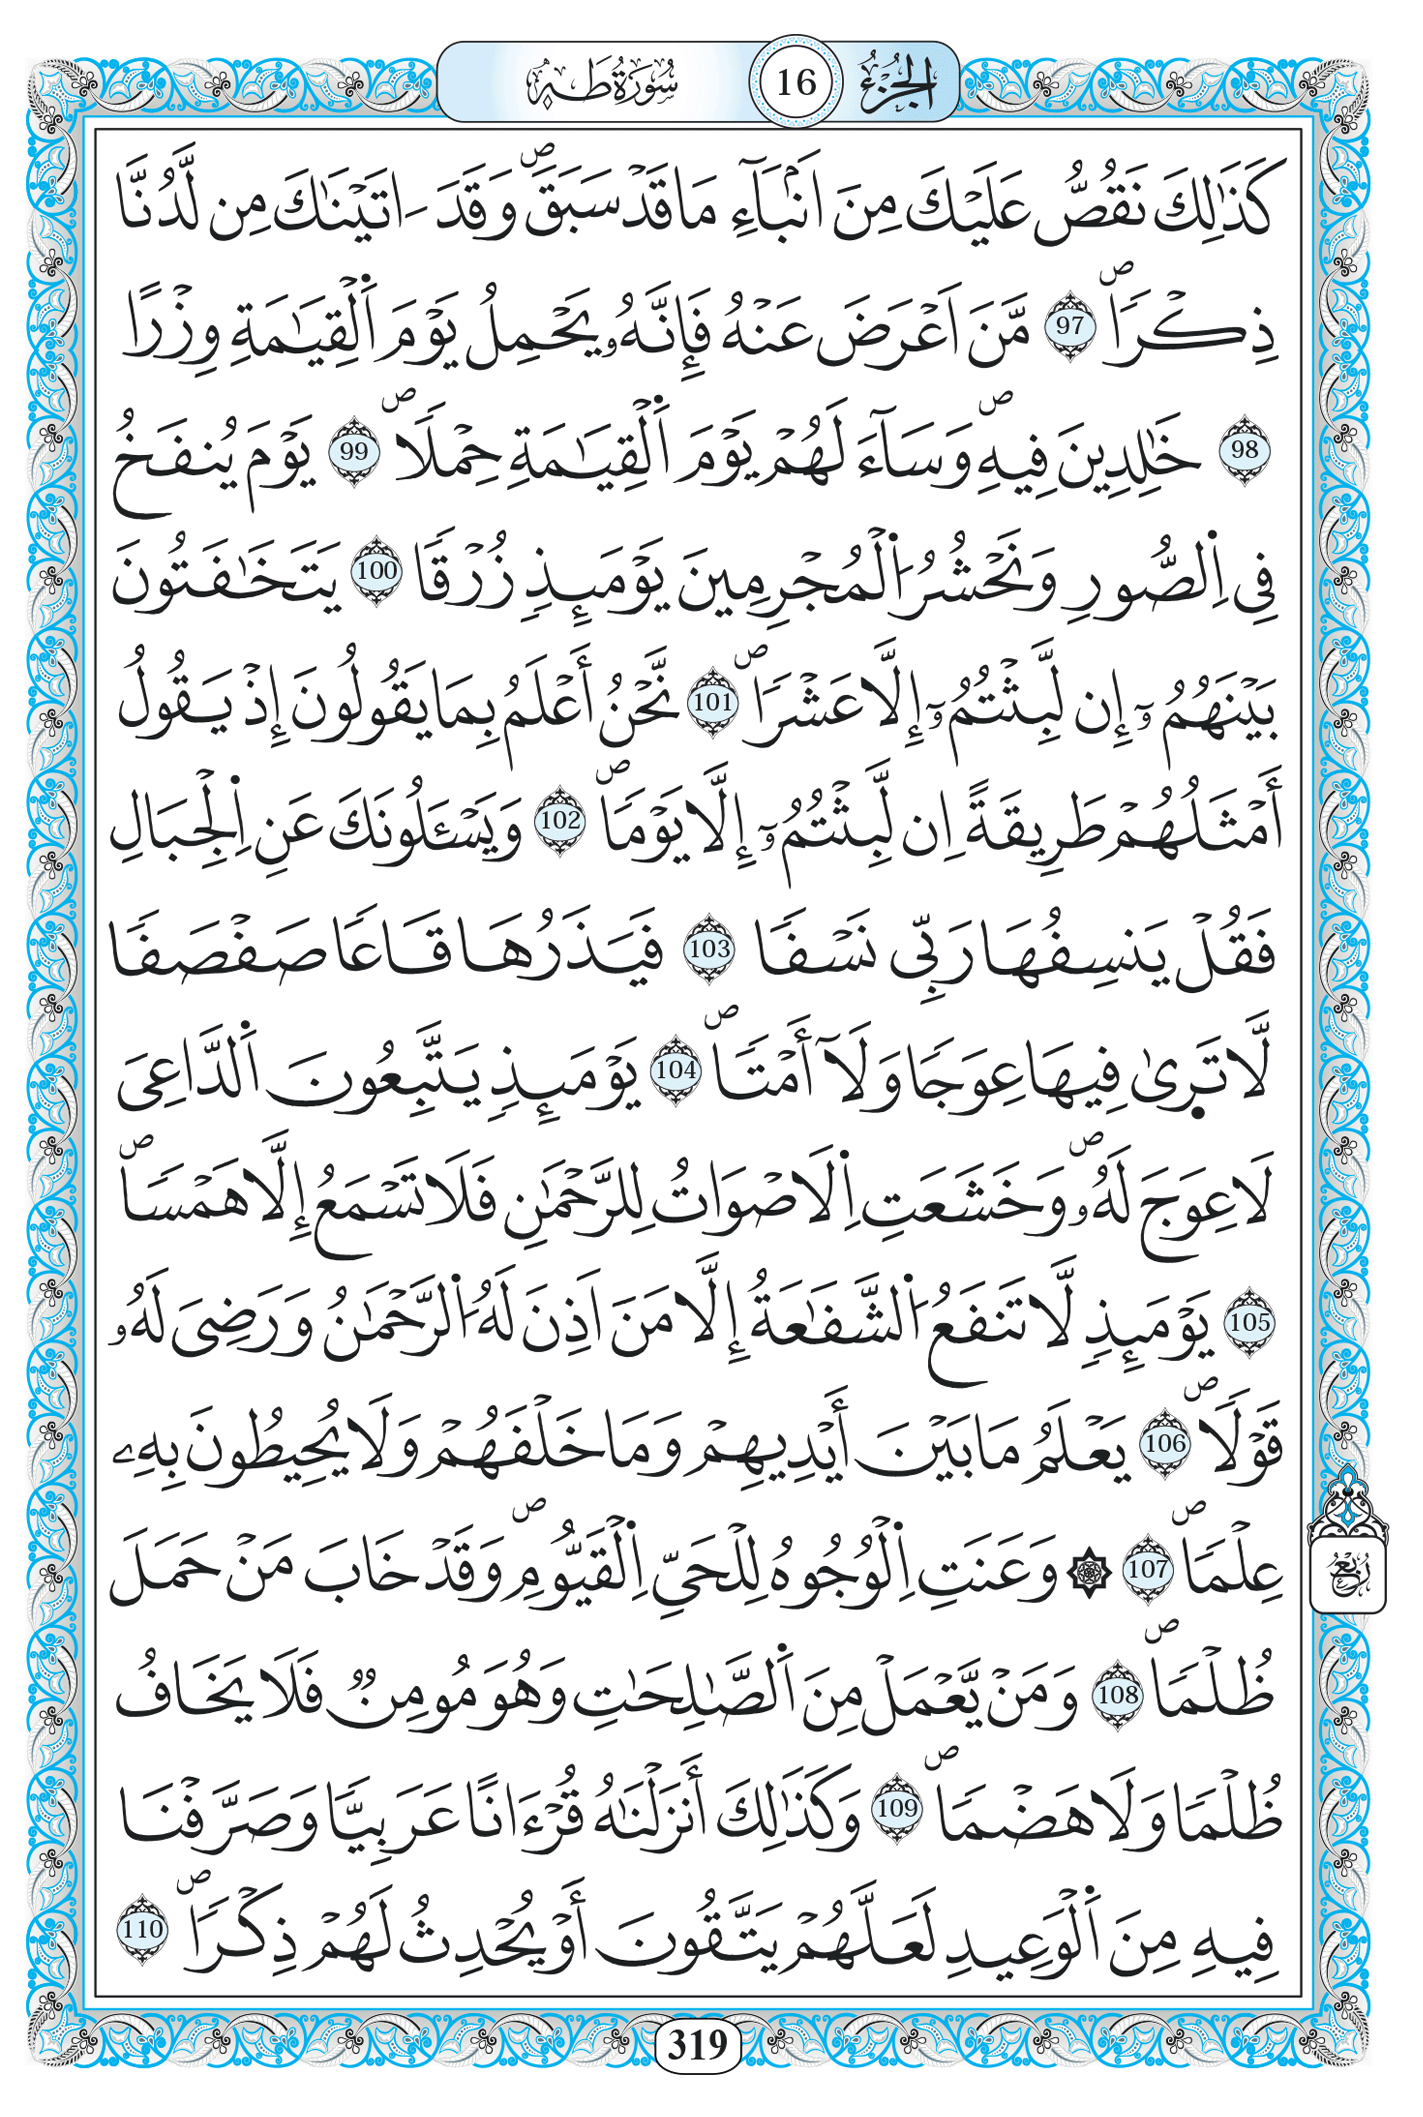 الجزء 16 سورة طه
كَذَٰلِكَ نَقُصُّ عَلَيْكَ مِنَ اَنۢبَآءِ مَا قَدْ سَبَقَۖ وَقَدَ ـ اتَيْنَٰكَ مِن لَّدُنَّا
ذِكْراٗۖ 97 مَّنَ اَعْرَضَ عَنْهُ فَإِنَّهُۥ يَحْمِلُ يَوْمَ اَ۬لْقِيَٰمَةِ وِزْراً
98 خَٰلِدِينَ فِيهِۖ وَسَآءَ لَهُمْ يَوْمَ اَ۬لْقِيَٰمَةِ حِمْلاٗۖ 99 يَوْمَ يُنفَخُ
فِے اِ۬لصُّورِ وَنَحْشُرُ اُ۬لْمُجْرِمِينَ يَوْمَئِذٖ زُرْقاٗ 100 يَتَخَٰفَتُونَ
بَيْنَهُمُۥٓ إِن لَّبِثْتُمُۥٓ إِلَّا عَشْراٗۖ 101 نَّحْنُ أَعْلَمُ بِمَا يَقُولُونَ إِذْ يَقُولُ
أَمْثَلُهُمْ طَرِيقَةً اِن لَّبِثْتُمُۥٓ إِلَّا يَوْماٗۖ 102 وَيَسْـَٔلُونَكَ عَنِ اِ۬لْجِبَالِ
فَقُلْ يَنسِفُهَا رَبِّے نَسْفاٗ 103 فَيَذَرُهَا قَاعاٗ صَفْصَفاٗ
لَّا تَر۪يٰ فِيهَا عِوَجاٗ وَلَآ أَمْتاٗۖ 104 يَوْمَئِذٖ يَتَّبِعُونَ اَ۬لدَّاعِيَ
لَا عِوَجَ لَهُۥۖ وَخَشَعَتِ اِ۬لَاصْوَاتُ لِلرَّحْمَٰنِ فَلَا تَسْمَعُ إِلَّا هَمْساٗۖ
105 يَوْمَئِذٖ لَّا تَنفَعُ اُ۬لشَّفَٰعَةُ إِلَّا مَنَ اَذِنَ لَهُ اُ۬لرَّحْمَٰنُ وَرَضِيَ لَهُۥ
قَوْلاٗۖ 106 يَعْلَمُ مَا بَيْنَ أَيْدِيهِمْ وَمَا خَلْفَهُمْ وَلَا يُحِيطُونَ بِهِۦ
عِلْماٗۖ 107 ۞ وَعَنَتِ اِ۬لْوُجُوهُ لِلْحَيِّ اِ۬لْقَيُّومِۖ وَقَدْ خَابَ مَنْ حَمَلَ
ظُلْماٗۖ 108 وَمَنْ يَّعْمَلْ مِنَ اَ۬لصَّٰلِحَٰتِ وَهُوَ مُومِنٞ فَلَا يَخَافُ
ظُلْماٗ وَلَا هَضْماٗۖ 109 وَكَذَٰلِكَ أَنزَلْنَٰهُ قُرْءَاناً عَرَبِيّاٗ وَصَرَّفْنَا
فِيهِ مِنَ اَ۬لْوَعِيدِ لَعَلَّهُمْ يَتَّقُونَ أَوْ يُحْدِثُ لَهُمْ ذِكْراٗۖ 110
ربع
319